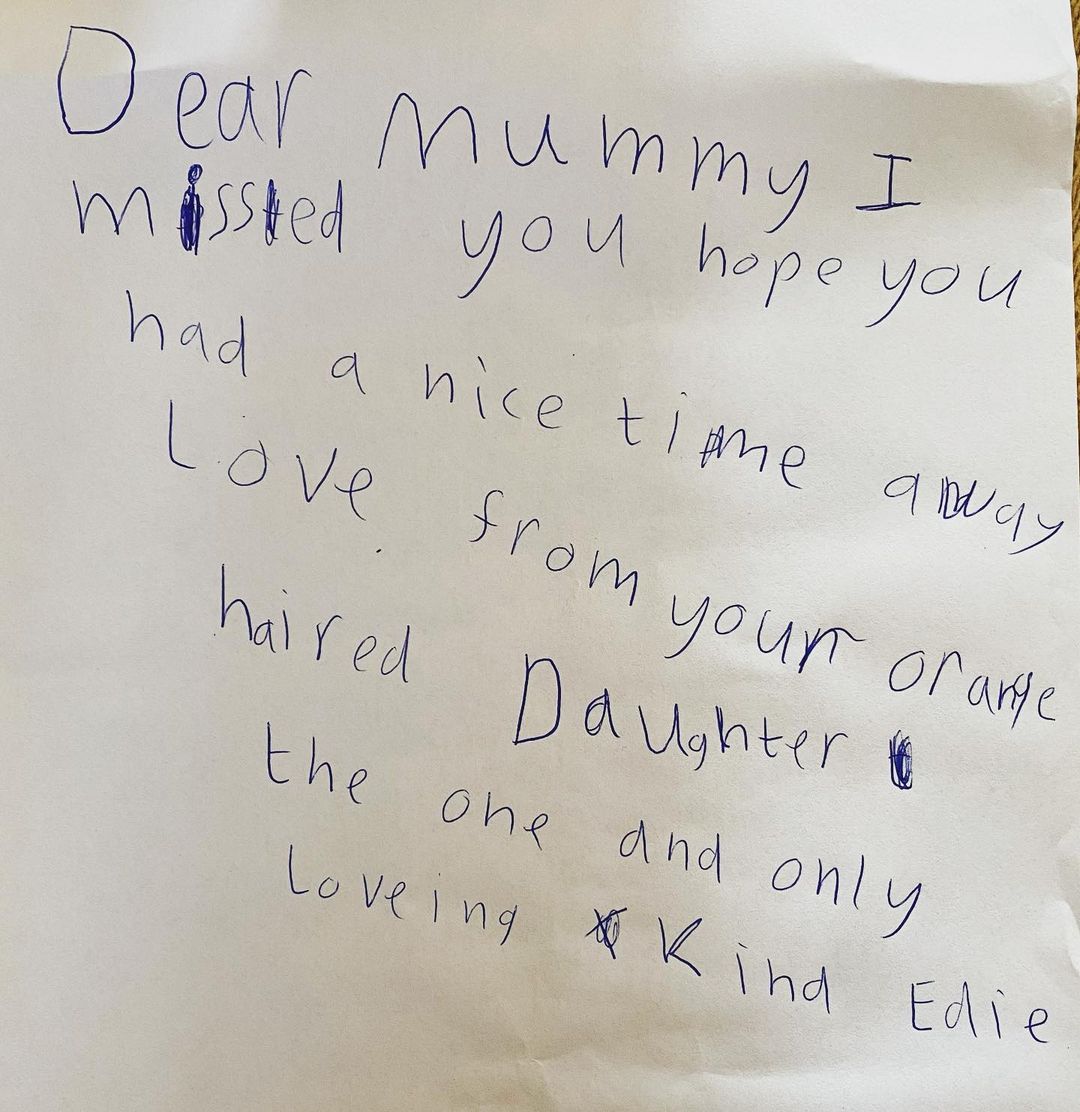 Dear Mummy I
missted you hope you
had a nice time away
Love from your orange
haired Daughter
the one and only
Loveing Kind Edie